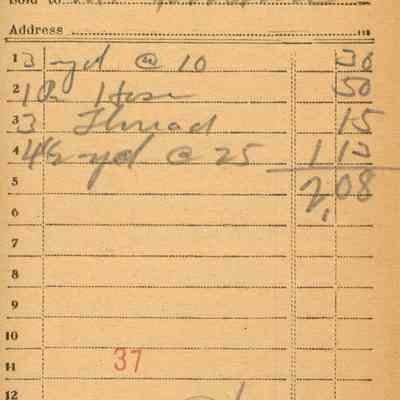 Sold to
Address
1 3 yd @ 10 30
2 1 Pr Hose 50
3 3 Thread 15
4 4½ yd @ 25 1 13
5 2,08
6
7
8
9
10
11 37
12